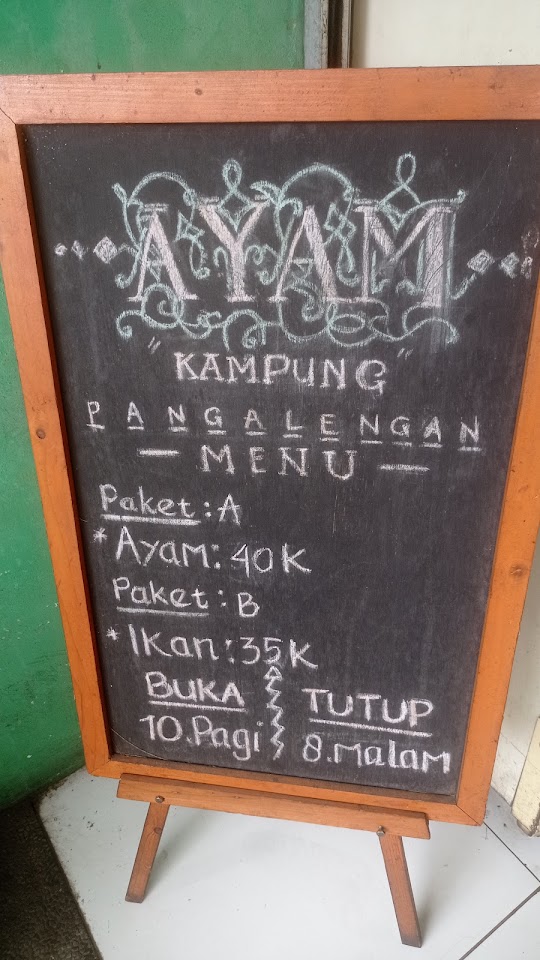 AYAM
"KAMPUNG"
PANGALENGAN
— MENU —
Paket : A
* Ayam : 40K
Paket : B
* Ikan : 35K
BUKA TUTUP
10.Pagi 8.Malam